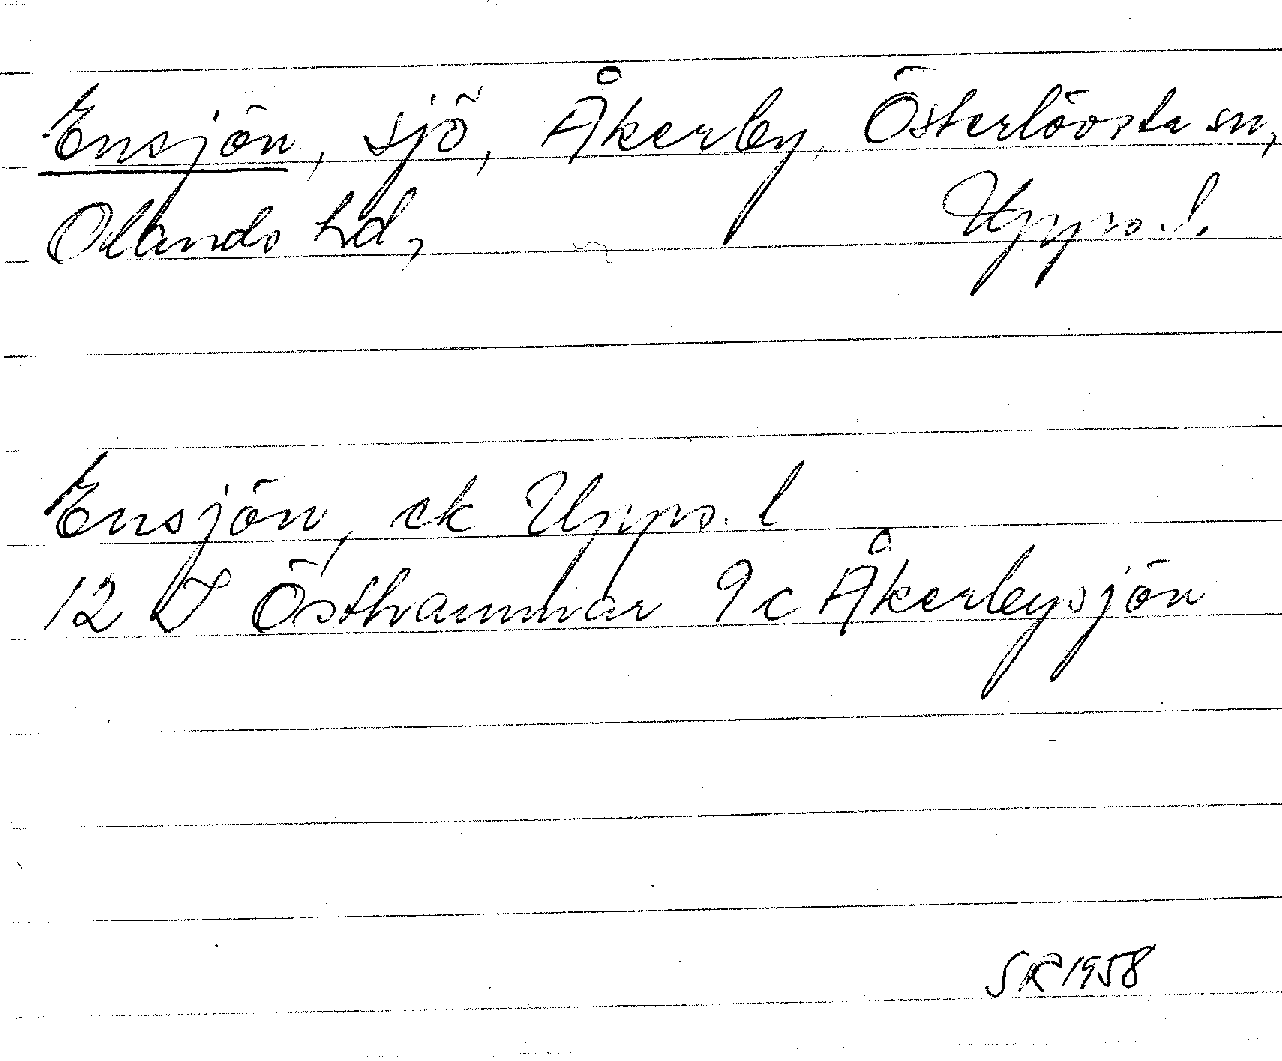 Ensjön, sjö, Åkerby, Österlövsta sn,
Olands hd, Upps. l.
Ensjön, ek Upps. l
12 I Östhammar 9c Åkerbysjön
SR 1958